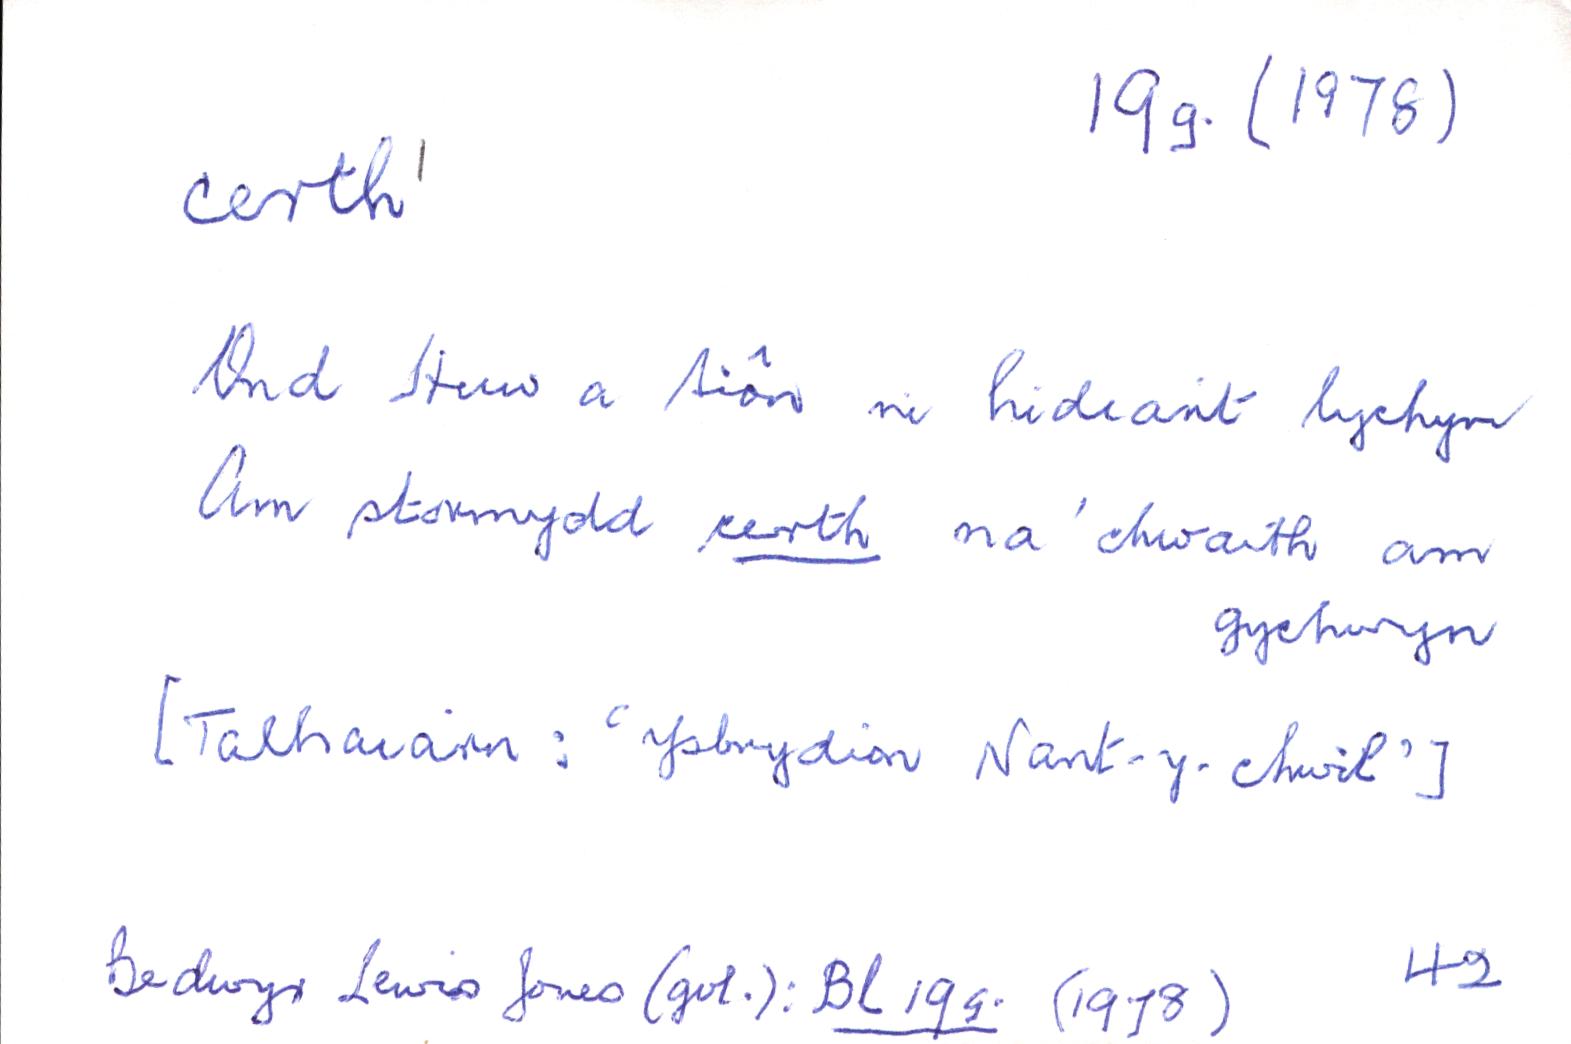 19g. (1978)
certh¹
Ond Huw a Siôn ni hidiant lychyn
Am stormydd certh na 'chwaith am
gychwyn
[Talhaiarn : 'Ysbrydion Nant-y-chwil']
Bedwyr Lewis Jones (gol.): Bl 19g. (1978) 42